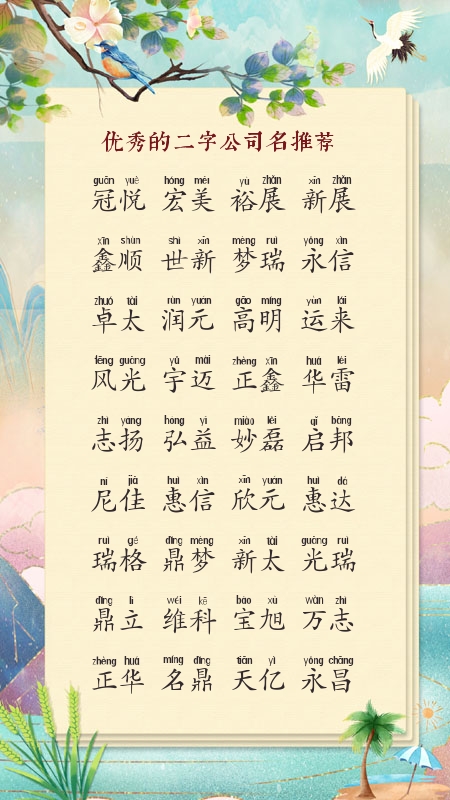 优秀的二字公司名推荐
guān yuè hóng měi yù zhǎn xīn zhǎn
冠悦 宏美 裕展 新展
xīn shùn shì xīn mèng ruì yǒng xìn
鑫顺 世新 梦瑞 永信
zhuó tài rùn yuán gāo míng yùn lái
卓太 润元 高明 运来
fēng guāng yǔ mài zhèng xīn huá léi
风光 宇迈 正鑫 华雷
zhì yáng hóng yì miào lěi qǐ bāng
志扬 弘益 妙磊 启邦
ní jiā huì xìn xīn yuán huì dá
尼佳 惠信 欣元 惠达
ruì gé dǐng mèng xīn tài guāng ruì
瑞格 鼎梦 新太 光瑞
dǐng lì wéi kē bǎo xù wàn zhì
鼎立 维科 宝旭 万志
zhèng huá míng dǐng tiān yì yǒng chāng
正华 名鼎 天亿 永昌